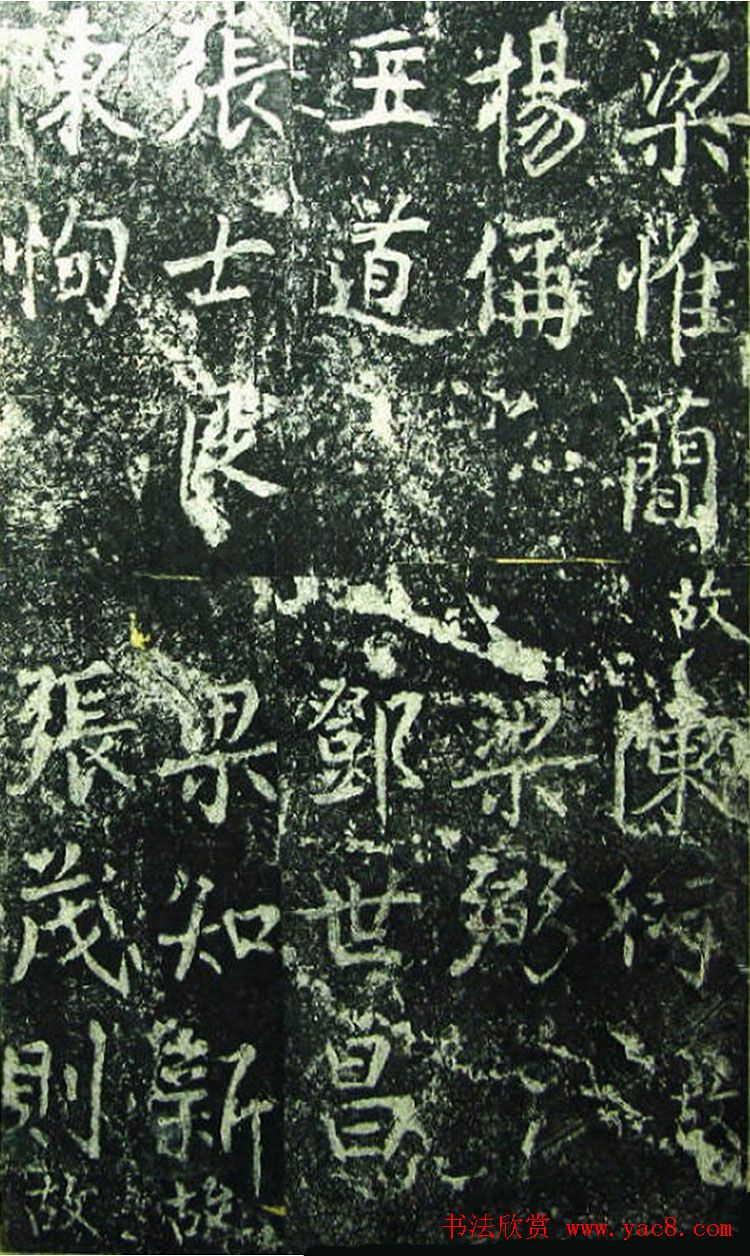 梁惟簡故陳衍
楊偁梁弼
王道鄧世昌
張士良梁知新故
陳恂張茂則故
书法欣赏 www.yac8.com